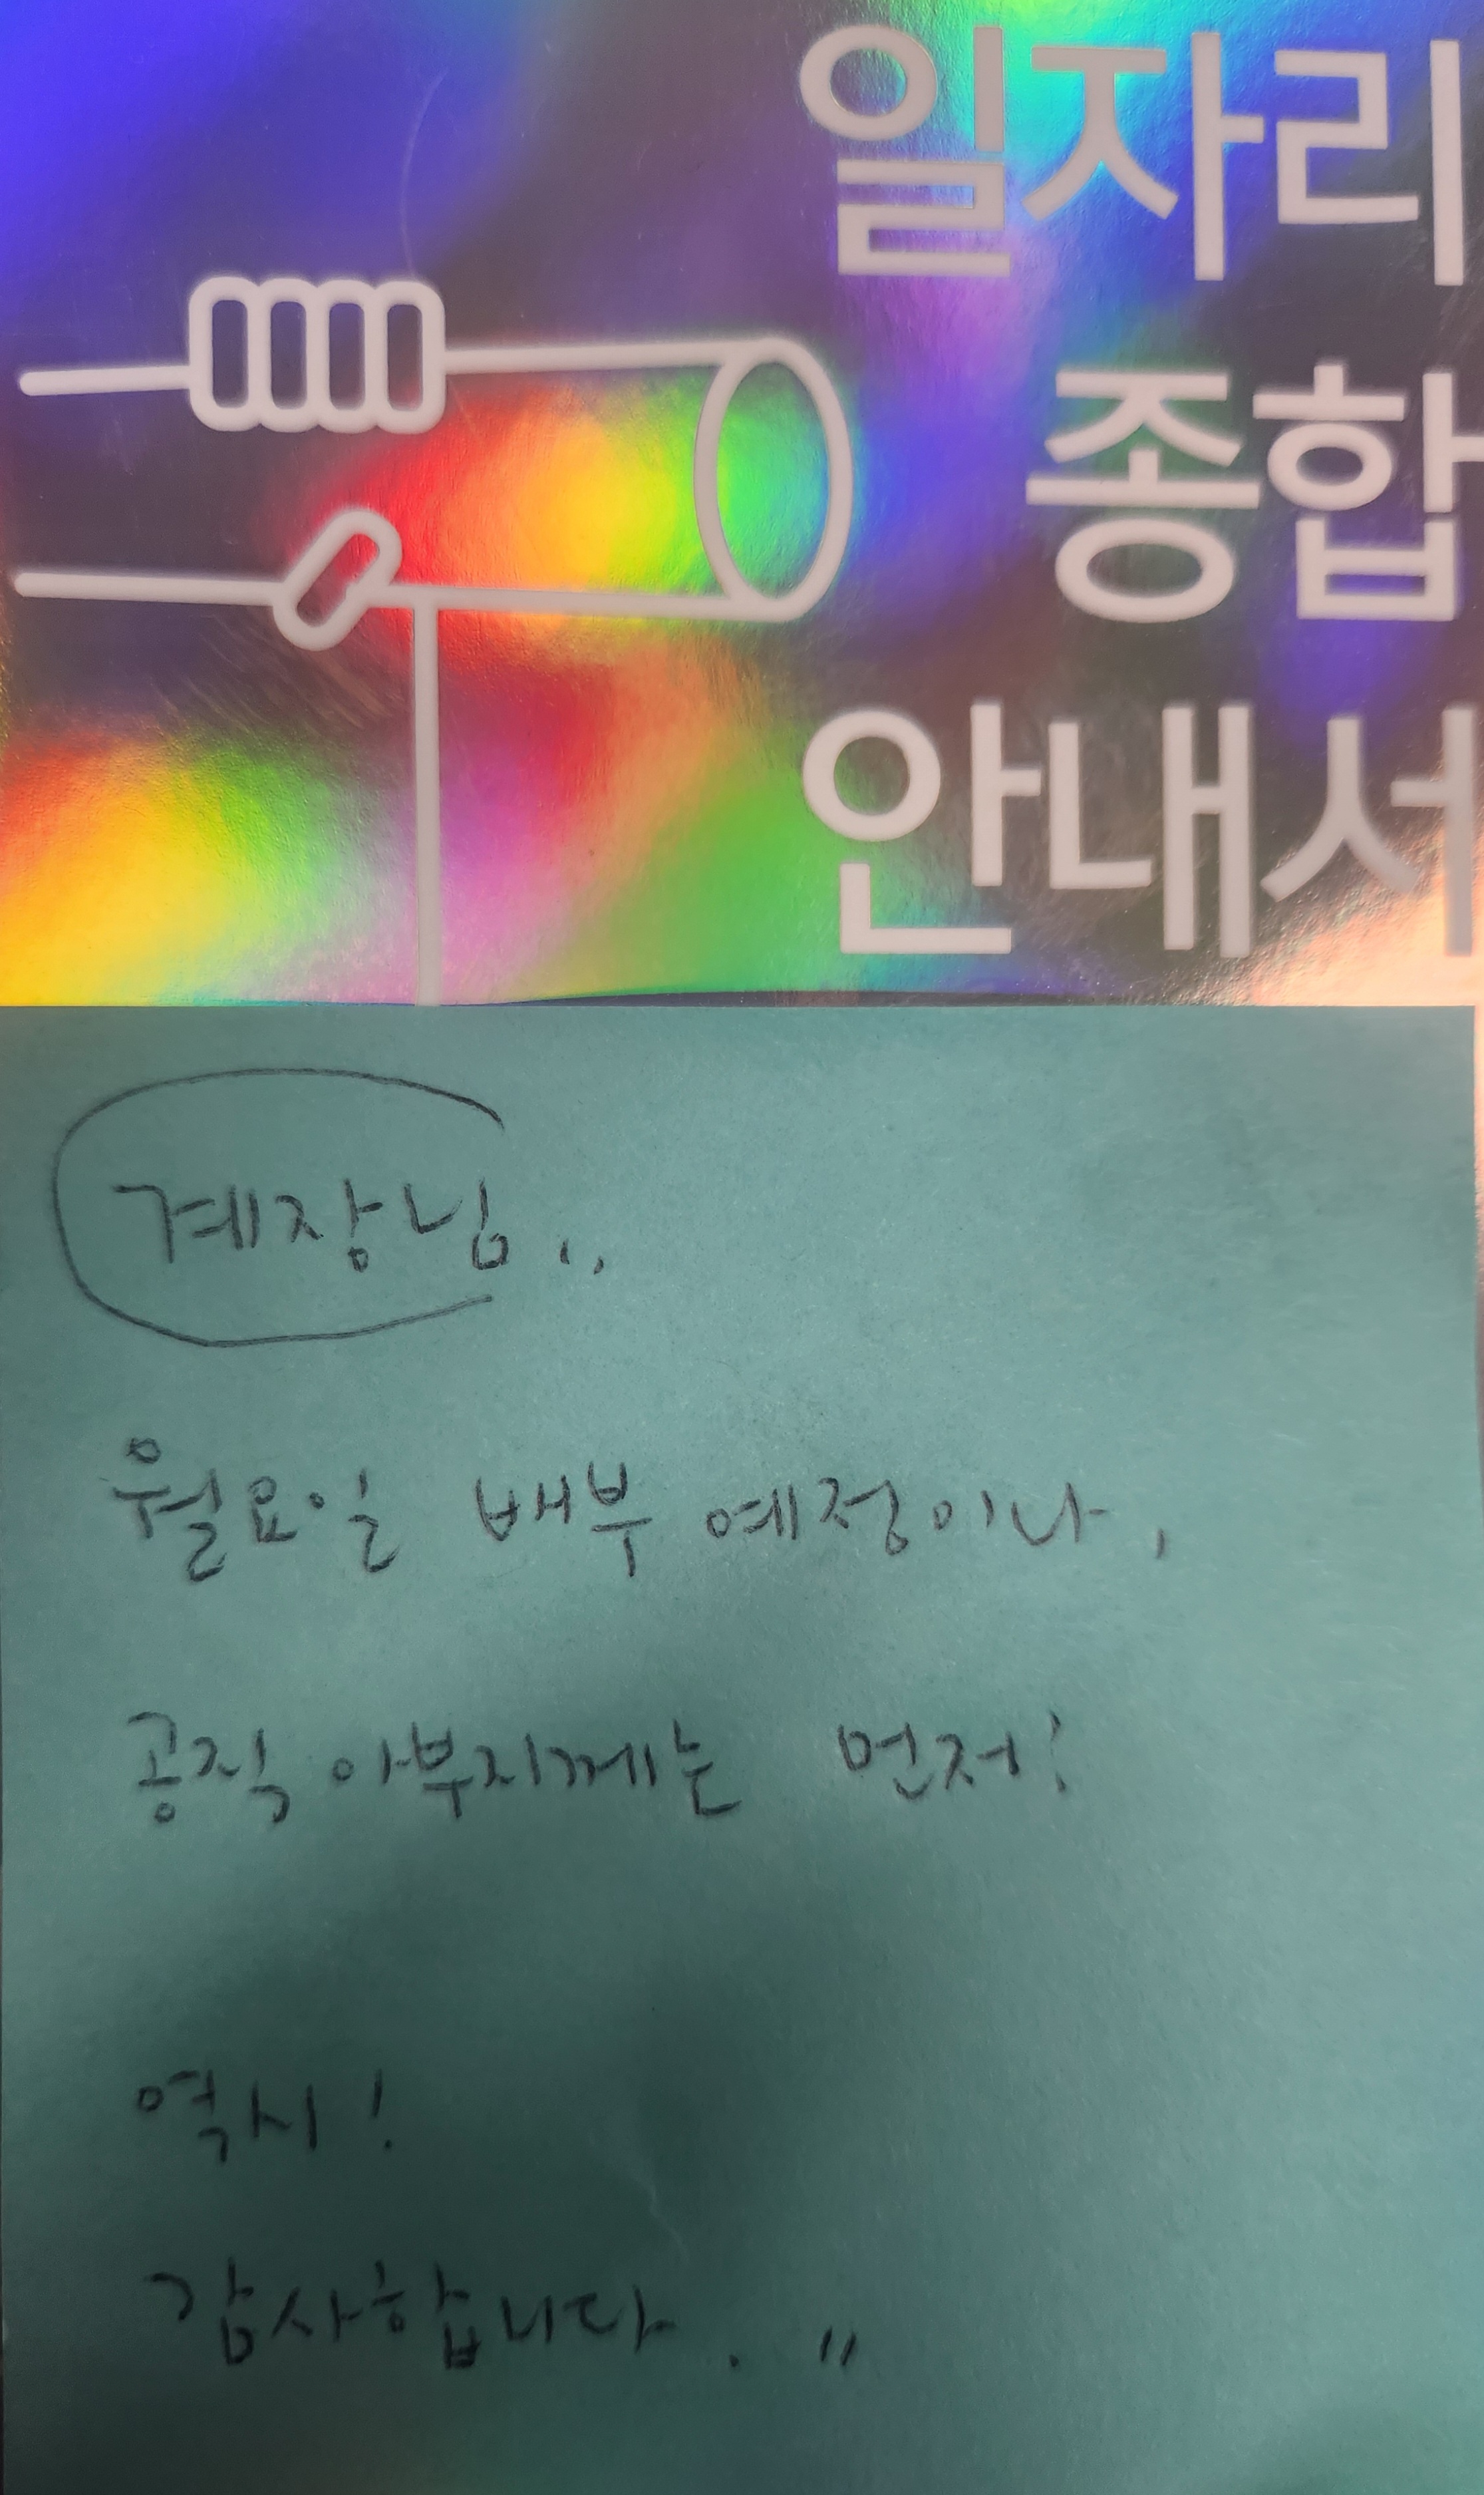 일자리
종합
안내서
계장님..
월요일 배부 예정이나,
공직 아부지께는 먼저!
역시!
감사합니다. "